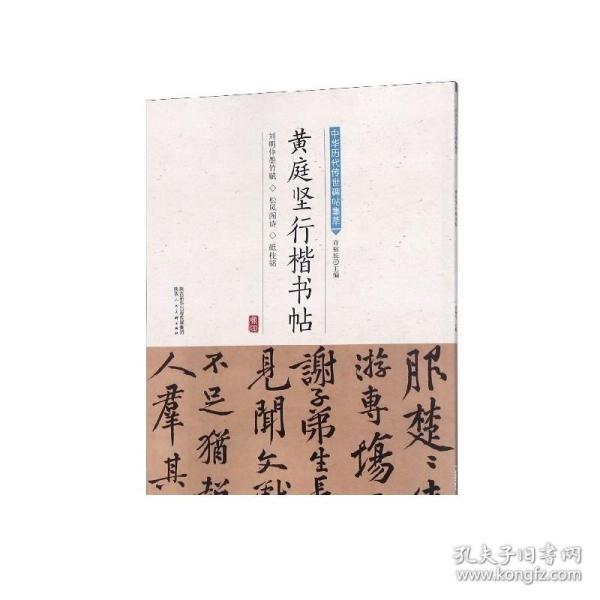 中华历代传世碑帖集萃
许裕长◎主编
黄庭坚行楷书帖
刘明仲墨竹赋◇松风阁诗◇砥柱铭
陕西新华出版传媒集团
陕西人民美术出版社
服楚〻
游專場
謝子弟生長
見聞文
不足猶
人羣其
孔夫子旧书网
www.kongfz.com